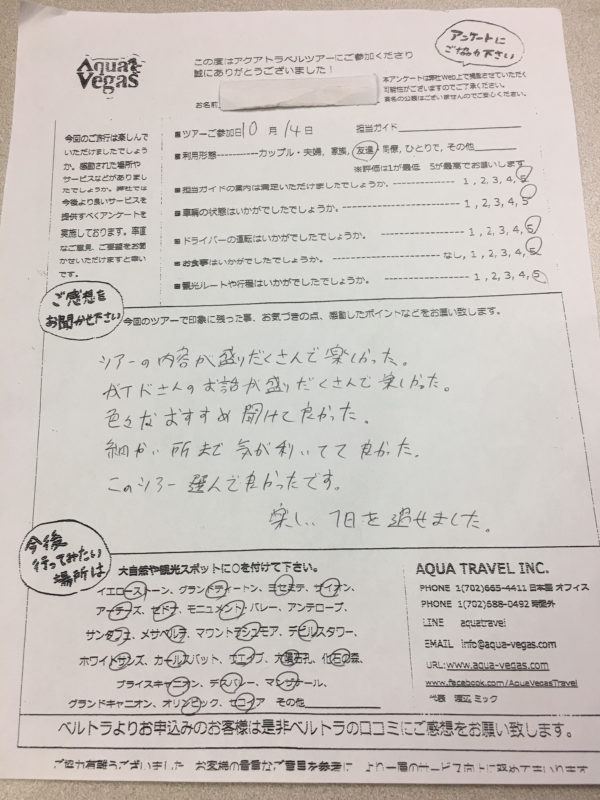 Aqua Vegas
この度はアクアトラベルツアーにご参加くださり
誠にありがとうございました！
アンケートに
ご協力下さい
本アンケートは弊社Web上で掲載させていただく
可能性がございますのでご了承ください。
署名の公表はございませんのでご安心ください。
お名前
今回のご旅行は楽しんで
いただけましたでしょう
か。感動された場所や
サービスなどがありまし
たでしょうか。弊社では
今後より良いサービスを
提供すべくアンケートを
実施しております。率直
なご意見、ご要望をお聞
かせいただけますと幸い
です。
■ツアーご参加日10月14日 担当ガイド
■利用形態-----------カップル・夫婦, 家族, 友達, 同僚, ひとりで, その他
※評価は1が最低 5が最高でお願いします
■担当ガイドの案内は満足いただけましたでしょうか。 ---------- 1 , 2, 3, 4, 5
■車輌の状態はいかがでしたでしょうか。 ---------- 1 , 2, 3, 4, 5
■ドライバーの運転はいかがでしたでしょうか。 ---------- 1 , 2, 3, 4, 5
■お食事はいかがでしたでしょうか。 ---------- なし, 1, 2, 3, 4, 5
■観光ルートや行程はいかがでしたでしょうか。 ---------- 1 , 2, 3, 4, 5
ご感想を
お聞かせ下さい
今回のツアーで印象に残った事、お気づきの点、感動したポイントなどをお願い致します。
ツアーの内容が盛りだくさんで楽しかった。
ガイドさんのお話が盛りだくさんで楽しかった。
色々なおすすめ聞けて良かった。
細かい所まで気が利いてて良かった。
このツアー選んで良かったです。
楽しい1日を過せました。
今後
行ってみたい
場所は
大自然や観光スポットに○を付けて下さい。
イエローストーン、グランドティートン、ヨセミテ、ザイオン、
アーチーズ、セドナ、モニュメントバレー、アンテロープ、
サンタフェ、メサベルデ、マウントラシュモア、デビルスタワー、
ホワイトサンズ、カールスバット、ウエイブ、大隕石孔、化石の森、
ブライスキャニオン、デスバレー、マンザナール、
グランドキャニオン、オリンピック、セコイア その他
AQUA TRAVEL INC.
PHONE 1(702)665-4411 日本語 オフィス
PHONE 1(702)688-0492 時間外
LINE aquatravel
EMAIL info@aqua-vegas.com
URL:www.aqua-vegas.com
www.facebook.com/AquaVegasTravel
代表 渡辺 ミック
ベルトラよりお申込みのお客様は是非ベルトラの口コミにご感想をお願い致します。
ご協力有難うございました お客様の貴重なご意見を参考に より一層のサービス向上に努めてまいります